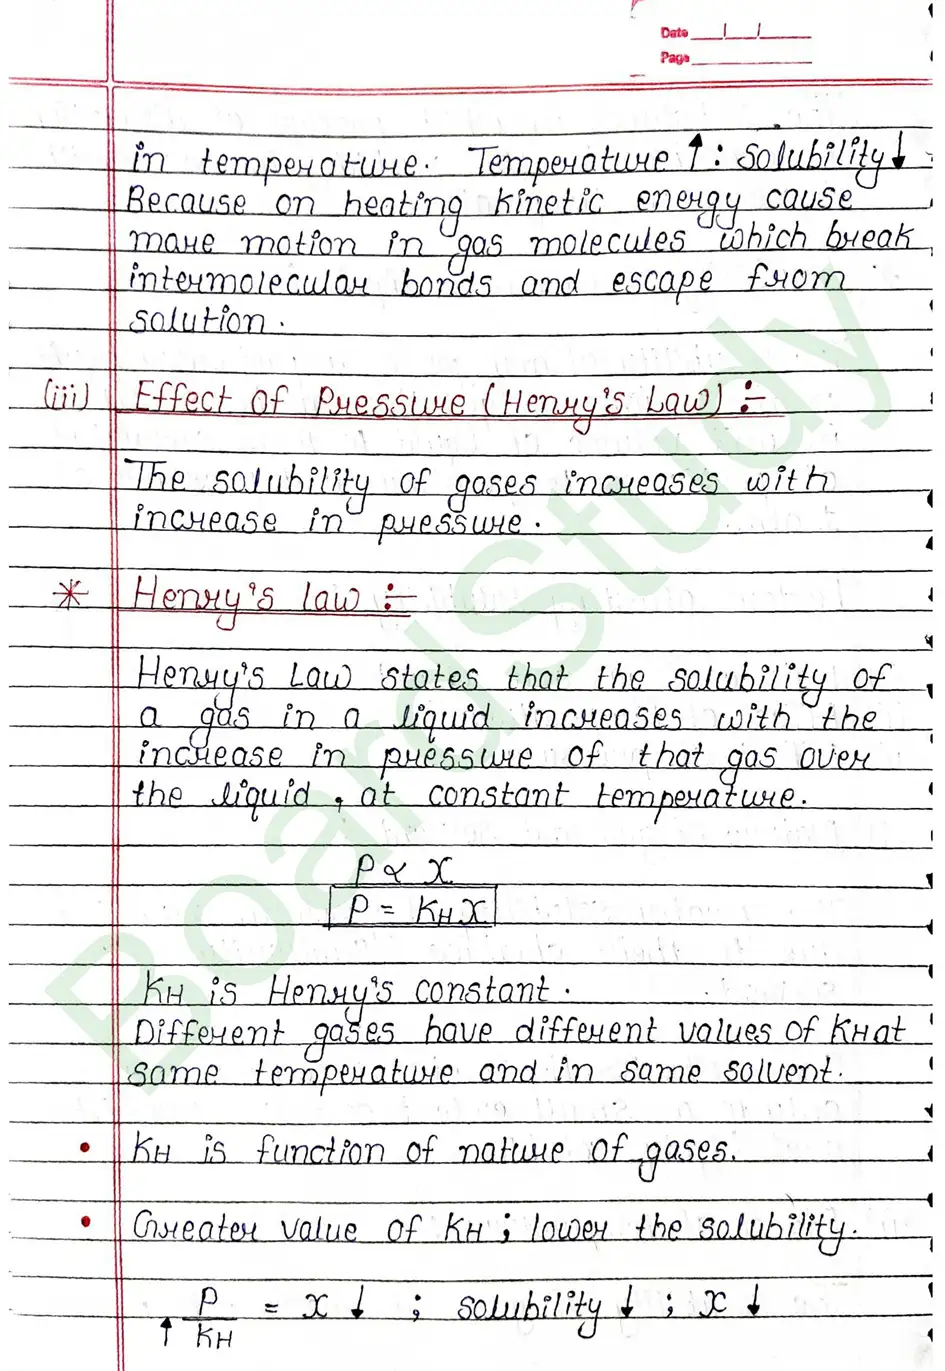 Date __/__/__
Page
in temperature. Temperature ↑ : Solubility ↓
Because on heating kinetic energy cause
more motion in gas molecules which break
intermolecular bonds and escape from
solution.
(iii) Effect of Pressure (Henry's Law) :-
The solubility of gases increases with
increase in pressure.
* Henry's law :-
Henry's Law states that the solubility of
a gas in a liquid increases with the
increase in pressure of that gas over
the liquid, at constant temperature.
P ∝ x
P = KH x
KH is Henry's constant.
Different gases have different values of KH at
same temperature and in same solvent.
• KH is function of nature of gases.
• Greater value of KH ; lower the solubility.
↑ P/KH = x ↓ ; solubility ↓ ; x ↓
BoardStudy